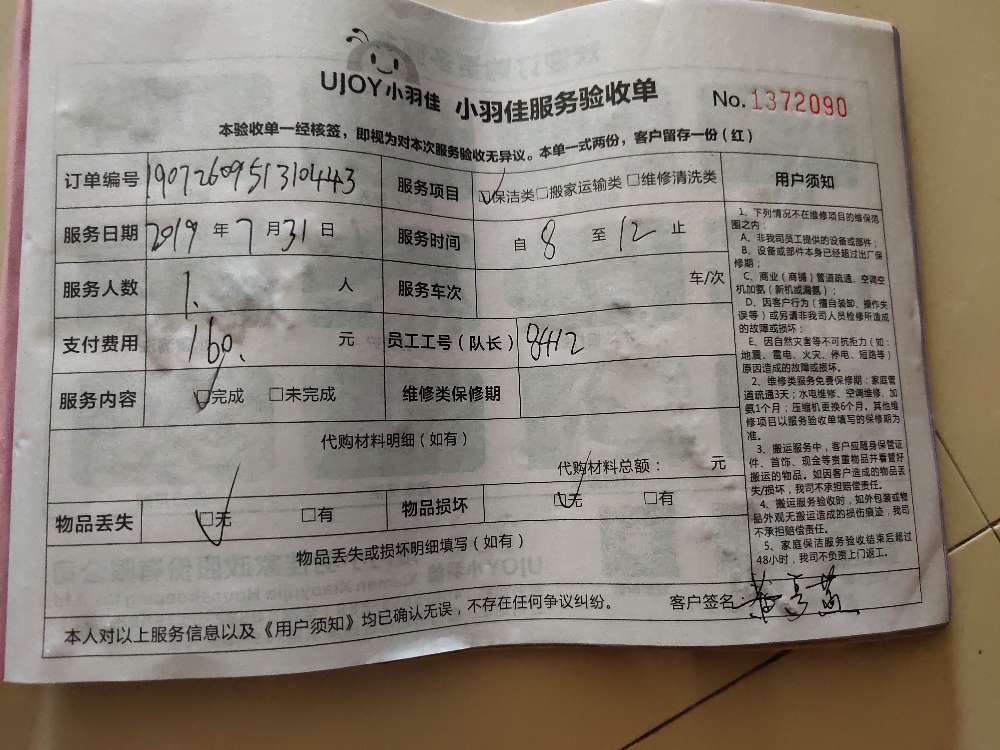 UJOY小羽佳 小羽佳服务验收单 No.1372090
本验收单一经核签，即视为对本次服务验收无异议。本单一式两份，客户留存一份（红）
订单编号 19072609513104443 服务项目 ☑保洁类□搬家运输类□维修清洗类
服务日期 2019 年 7 月 31 日 服务时间 自 8 至 12 止
服务人数 1. 人 服务车次 车/次
支付费用 160. 元 员工工号（队长） 8412
服务内容 ☑完成 □未完成 维修类保修期
代购材料明细（如有）
代购材料总额： 元
物品丢失 ☑无 □有 物品损坏 ☑无 □有
物品丢失或损坏明细填写（如有）
本人对以上服务信息以及《用户须知》均已确认无误，不存在任何争议纠纷。 客户签名：
用户须知
1、下列情况不在维修项目的维保范
围之内：
A、非我司员工提供的设备或部件；
B、设备或部件本身已经超过出厂保
修期；
C、商业（商铺）管道疏通、空调空
机加氨（新机或漏氨）；
D、因客户行为（擅自装卸、操作失
误等）或另请非我司人员检修所造成
的故障或损坏；
E、因自然灾害等不可抗拒力（如：
地震、雷电、火灾、停电、短路等）
原因造成的故障或损坏。
2、维修类服务免费保修期：家庭管
道疏通3天；水电维修、空调维修、加
氨1个月；压缩机更换6个月。其他维
修项目以服务验收单填写的保修期为
准。
3、搬运服务中，客户应随身保管证
件、首饰、现金等贵重物品并看管好
搬运的物品。如因客户造成的物品丢
失/损坏，我司不承担赔偿责任。
4、搬运服务验收时，如外包装或物
品外观无搬运造成的损伤痕迹，我司
不承担赔偿责任。
5、家庭保洁服务验收结束后超过
48小时，我司不负责上门返工。